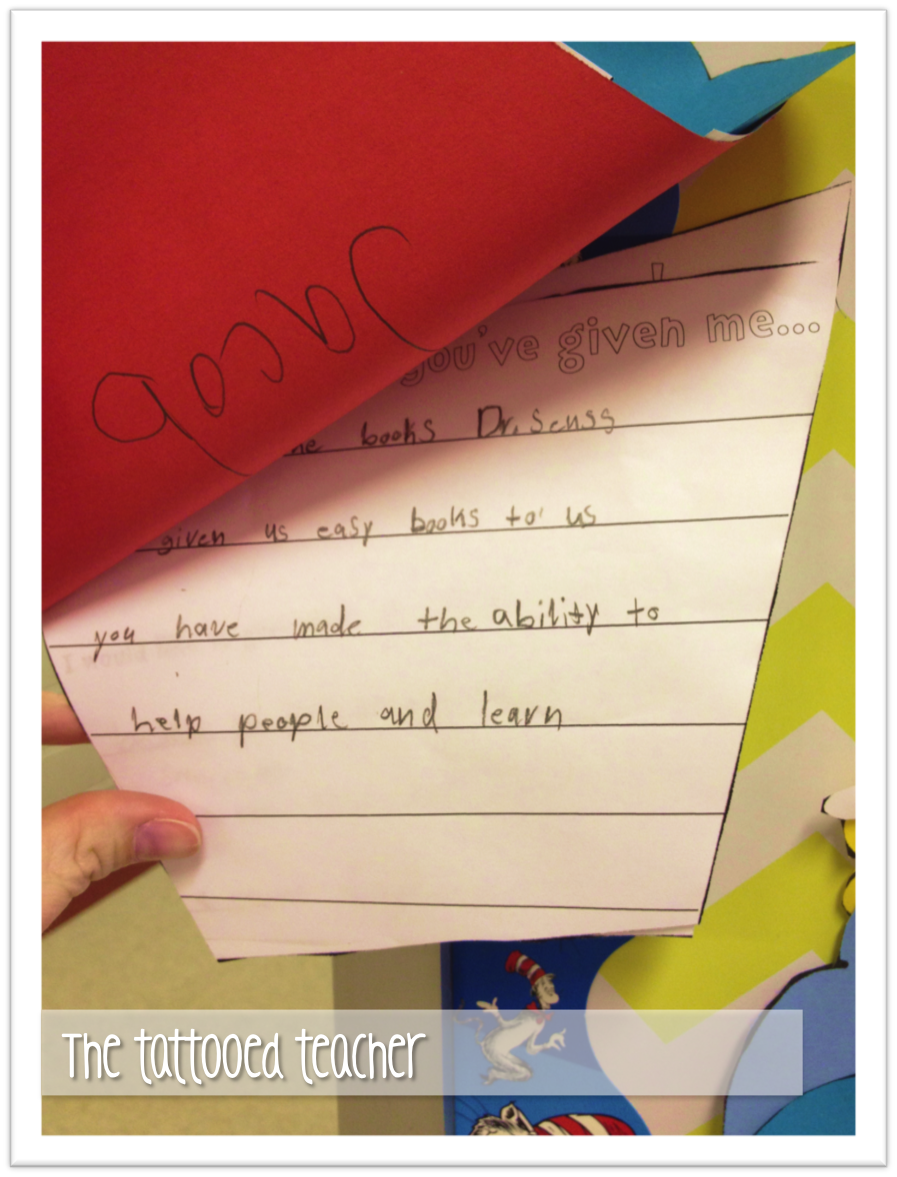 Jacob
you've given me...
books Dr. Seuss
given us easy books to us
you have made the ability to
help people and learn
The tattooed teacher